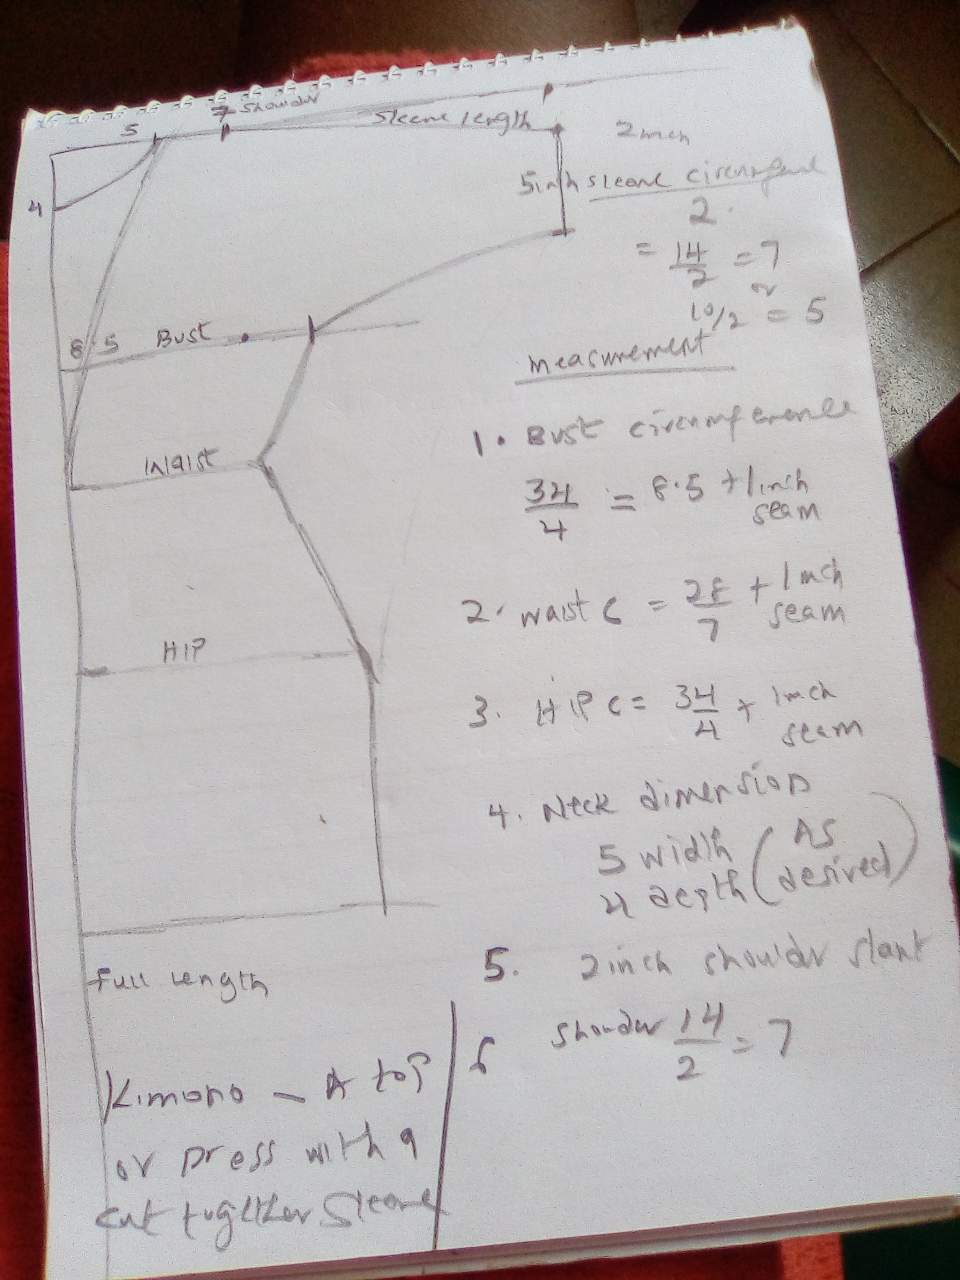 5
7 shoulder
Sleeve length
2 inch
4
5inh sleeve circumference
2
= 14/2 = 7
or
10/2 = 5
8.5 Bust
measurement
1. Bust circumference
34/4 = 8.5 + 1 inch seam
Waist
2. waist C = 28/7 + 1 inch seam
HIP
3. HIP C = 34/4 + 1 inch seam
4. Neck dimension
5 width
4 depth (As desired)
5. 2 inch shoulder slant
Full Length
6 Shoulder 14/2 = 7
Kimono - A top
or press with a
cut together sleeve